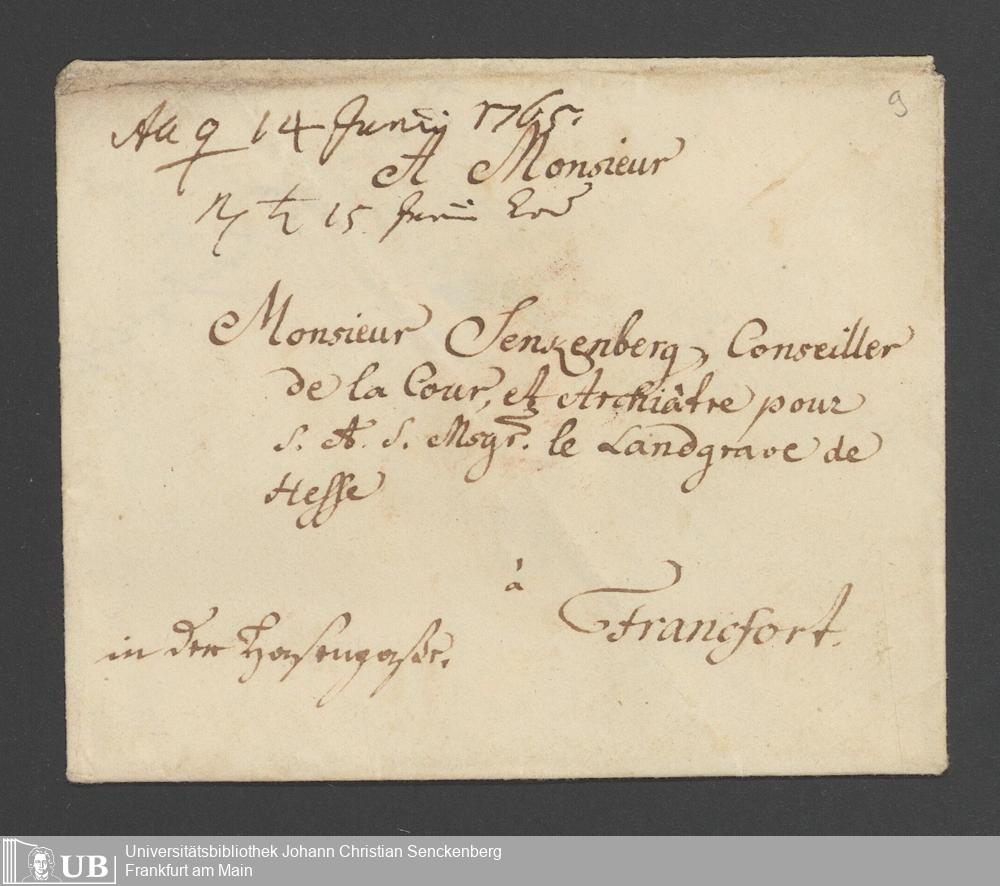 9
All ♀ 14 Junii 1765.
A Monsieur
♄ 15 Junii
Monsieur Senkenberg, Conseiller
de la Cour, et Archiâtre pour
S. A. S. Msgr. le Landgrave de
Hesse
à
Francfort.
in der Hasengaße.
UB
Universitätsbibliothek Johann Christian Senckenberg
Frankfurt am Main